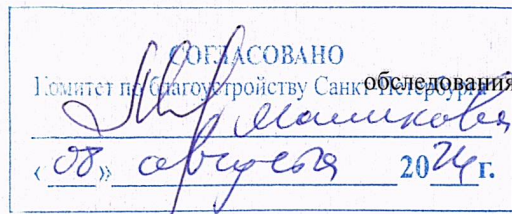 СОГЛАСОВАНО
Комитет по благоустройству Санкт-Петербурга
обследования
«08» августа 2024 г.